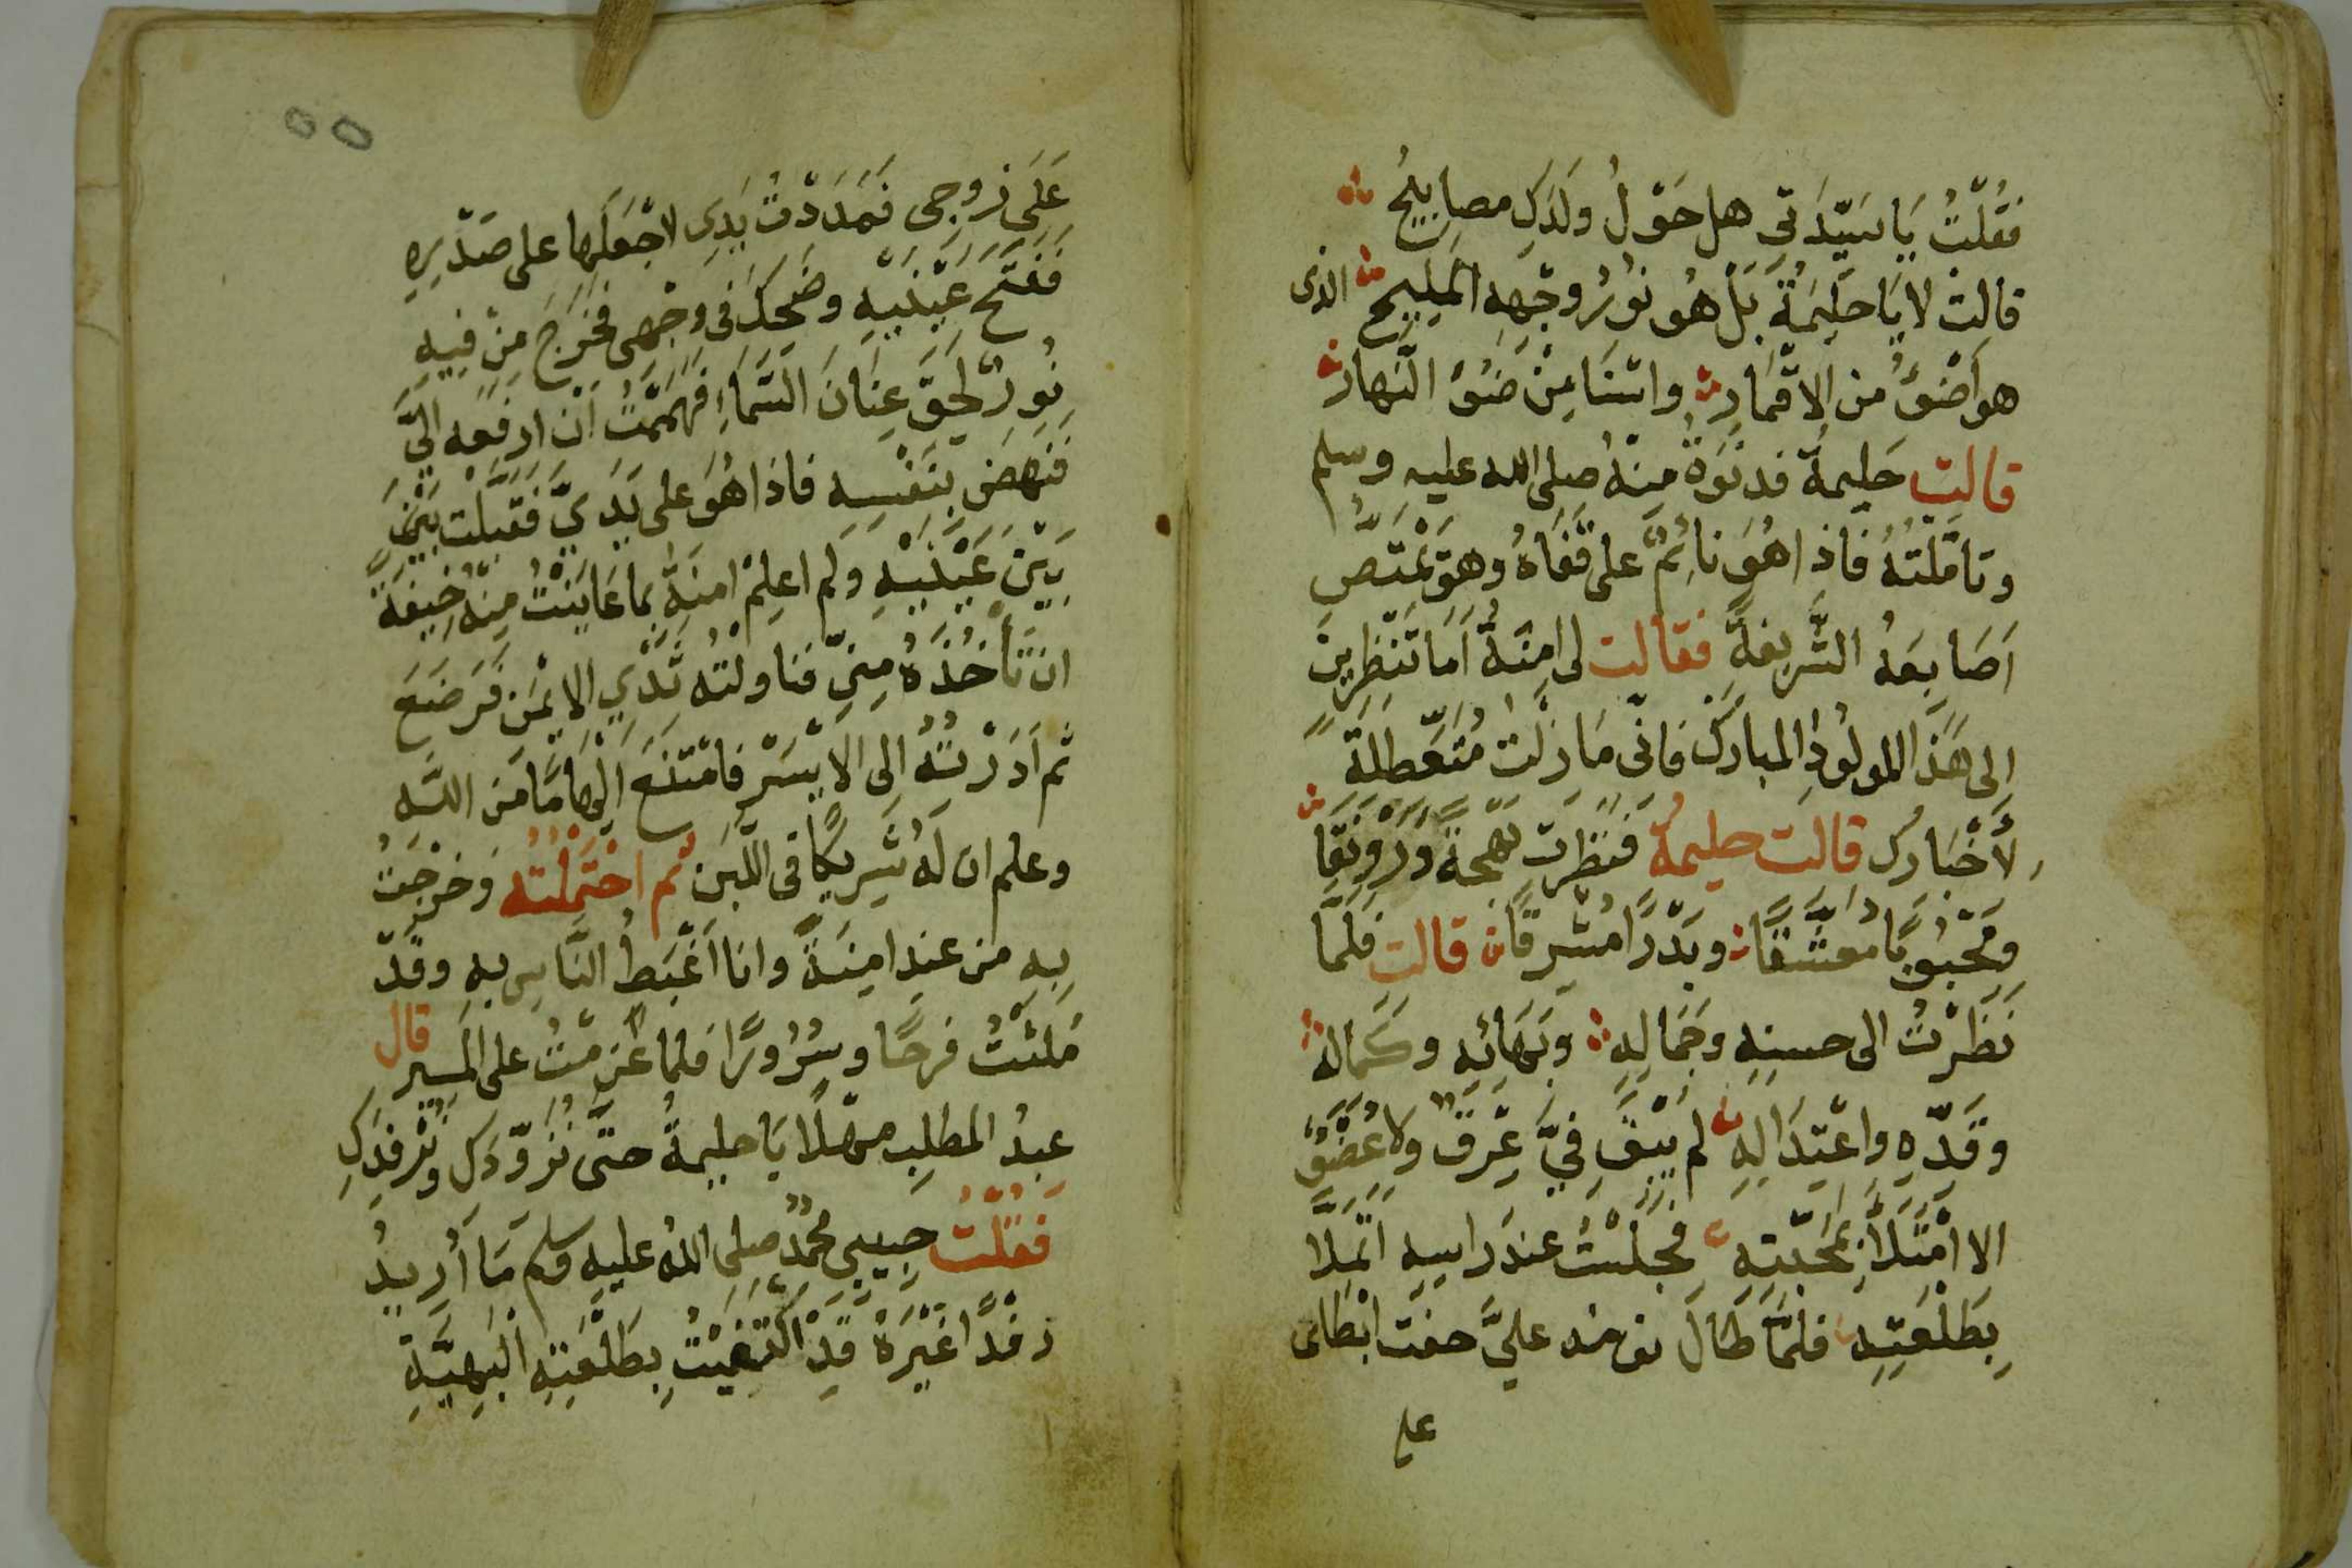 فَقُلْتُ يَا سَيِّدَتِي هل حَوْلُ ولَدَكِ مصابِيحُ
قالتْ لا يَا حَلِيمَةُ بَلْ هُو نوُرُ وجْهِهِ المَلِيحِ الذى
هو اَضْوَءُ من الاقْمَارِ واسْنَا مِنْ ضَوْءِ النَّهار
قالت حَلِيمةُ فدنَوْةُ مِنهُ صلى الله عليه وسلم
وتامَّلْتُهُ فاذا هُوَ نائمٌ على قَفَاهُ وهوَ يَمْتَصُّ
اَصَابِعَهُ الشَّرِيفةَ فقالت لى امِنَةُ اَمَا تَنْظِرِين
الى هَذَ المولوُدِ المبارَكْ فانّى مَا زلْتُ مُتَعَطّلةً
لأَخْبَارِكِ قالت حليمةُ فَنظَرت بَهْجَةً وَرَوْنَقًا
ومَحْبوُبًا مُعَشَّقًا وبَدْرًا مُشْرِقًا قالت فلَمَّا
نَظَرْتُ الى حسنِهِ وجَمَالِهِ وبَهَائِهِ وكَمَالهِ
وقَدِّهِ واعْتِدَالِهِ لم يَبْقَ فِيَّ عِرْقٌ ولا عُضْوٌ
الا امْتَلَأَ بمَحَبّتِهِ فجَلَسْتُ عندَ راسِهِ اَتَمَلَّا
بِطَلْعَتِهِ فلمَّا طَالَ نومه عليَّ خفت ابْطَائى
على
عَلَى زوجى فَمَدَدْتُ يَدِى لاجْعَلَها على صَدْرِهِ
ففَتَحَ عَيْنَيْهِ وضَحِكَ فى وجْهِى فخَرَجَ مِنْ فِيهِ
نُورٌ لَحِقَ عِنَانَ السَّمَاءِ فهَمَمْتُ اَنْ ارفَعَه اليَّ
فنَهَضَ بِنَفْسِهِ فاذا هُوَ على يَدَيَّ فَقَبَّلْت بَيْنَ
بَيْنَ عَيْنَيْهِ ولم اعلِمْ امنَةَ بما عَايَنْتُ مِنْه خِيفَةً
ان تَأْخُذَهُ مِنِّى فناولْتُه ثَدْيِ الايْمَن فَرَضَعَ
ثم اَدَرْتُهُ الى الايْسَرْ فامْتَنَعَ الْهَامًا مَن اللَّه
وعلم ان لَهُ شَرِيكًا فى اللّبَن ثم احْتَمَلْتُه وَخرجْتُ
بِهِ من عندِ امِنَةَ وانا اَغْبَطُ النَّاسِ بهِ وقَدْ
مَلئْتُ فرحًا وسُرُورًا فلما عَزَمْتُ على المَسِيرِ قال
عبدُ المطلِبِ مهْلًا يَا حليمةُ حتى نُزَوّدَكِ ونُرْفِدَكِ
فقُلْتُ حبيبى محمدٌ صلى اللهُ عليهِ وسلم مَا أُرِيدُ
رفْدًا غَيْرَهُ قَدِ اكْتَفَيْتُ بِطَلْعَتِهِ البَهِيَّةِ